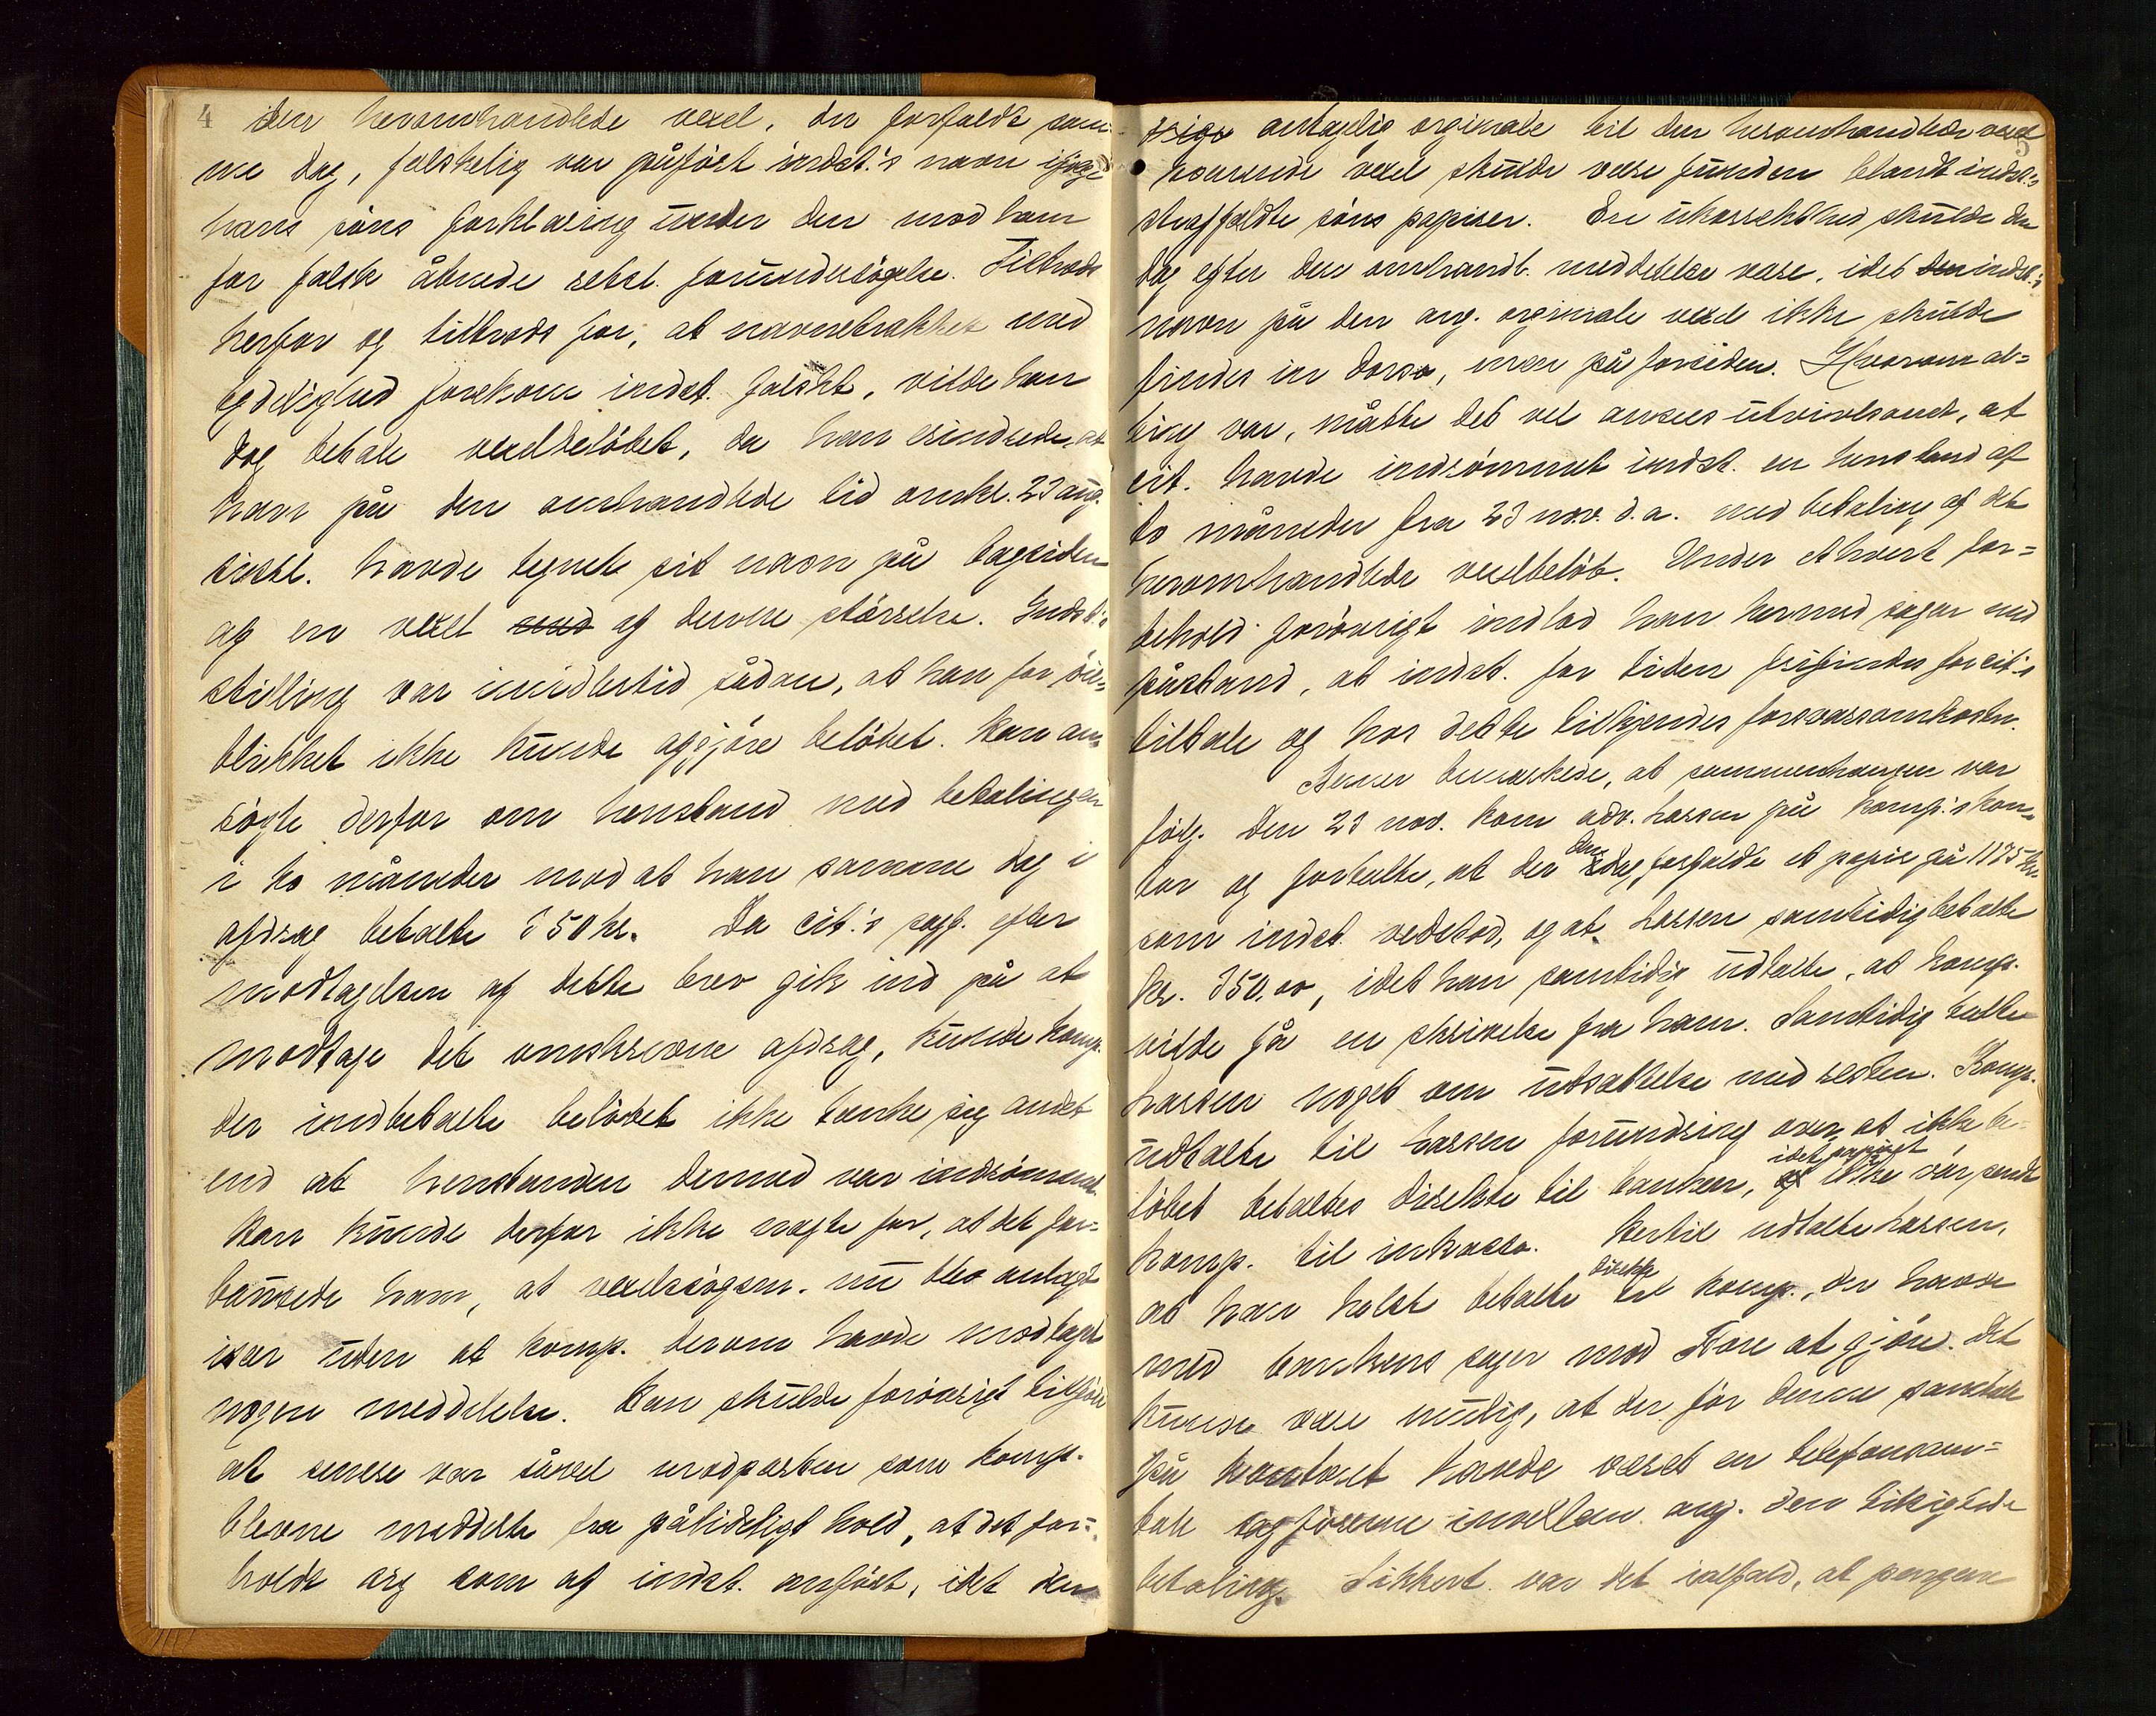 4
den heromhandlede vexel, der forfaldt sam-
me dag, falskelig var påført indst.'s navn ifølge
hans søns forklaring under den mod ham
for falsk åbnede retsl. forundersøgelse. Tiltrods
herfor og tiltrods for, at navnetrækket med
tydelighed forekom indst. falskt, vilde han
dog betale vexelbeløbet, da han erindrede, at
han på den omhandlede tid omkr. 23 aug.
sidstl. havde tegnet sit navn på bagsiden
af en vexel af denne størrelse. Indst.'s
stilling var imidlertid sådan, at han for øie-
blikket ikke kunde afgjøre beløbet. Han an-
søgte derfor om henstand med betalingen
i to måneder mod at han samme dag i
afdrag betalte 350 kr. Da cit.'s sagf. efter
modtagelsen af dette brev gik ind på at
modtage det omskrevne afdrag, kunde komp.
der indbetalte beløbet ikke tænke sig andet
end at henstanden dermed var indrømmet.
Han kunde derfor ikke nægte for, at det for-
bausede ham, at vexelsøgsm. nu blev anlagt
især uden at komp. derom havde modtaget
nogen meddelelse. Han skulde forøvrigt tilføie
at senere var såvel modparten som komp.
blevne meddelte fra pålideligt hold, at det for-
holdt sig som af indst. anført, idet den
5
antagelig orginale til den heromhandlede vexel
svarende vexel skulde være funden blandt indst.'s
straffældte søns papirer. En ukorrekthed skulde der
dog efter den omhandl. meddelelse være, idet indst.'s
navn på den ang. orginale vexel ikke skulde
findes in dorso, men på forsiden. Hvorom al-
ting var, måtte det vel ansees utvivlsomt, at
cit. havde indrømmet indst. en henstand af
to måneder fra 23 nov. d.a. med betaling af det
heromhandlede vexelbeløb. Under ethvert for-
behold forøvrigt indlod han hermed sagen med
påstand, at indst. for tiden frifindes for cit.'s
tiltale og hos dette tilkjendes forsvarsomkostn.
bemærkede, at sammenhængen var
følg. Den 23 nov. kom adv. Larsen på komp.'s kon-
tor og fortalte, at der den dag forfaldt et papir på 1175 kr.
som indst. vedstod, og at Larsen samtidig betalte
kr. 350.00, idet han samtidig udtalte, at komp.
vilde få en skrivelse fra ham. Samtidig talte
Larsen noget om udsættelse med resten. Komp.
udtalte til Larsen forundring over, at ikke be-
løbet betaltes direkte til banken, idet papiret ikke var sendt
komp. til inkasso. Hertil udtalte Larsen,
at han helst betalte direkte til komp., der havde
med bankens sager mod Tore at gjøre. Det
kunde være mulig, at der før denne samtale
på kontoret havde været en telefonsam-
tale sagførerne imellem ang. den
betaling. Sikkert var det ialfald, at pengene